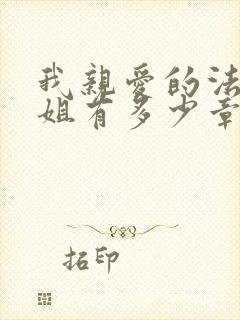 我親愛的法
姐有多少章
拓印